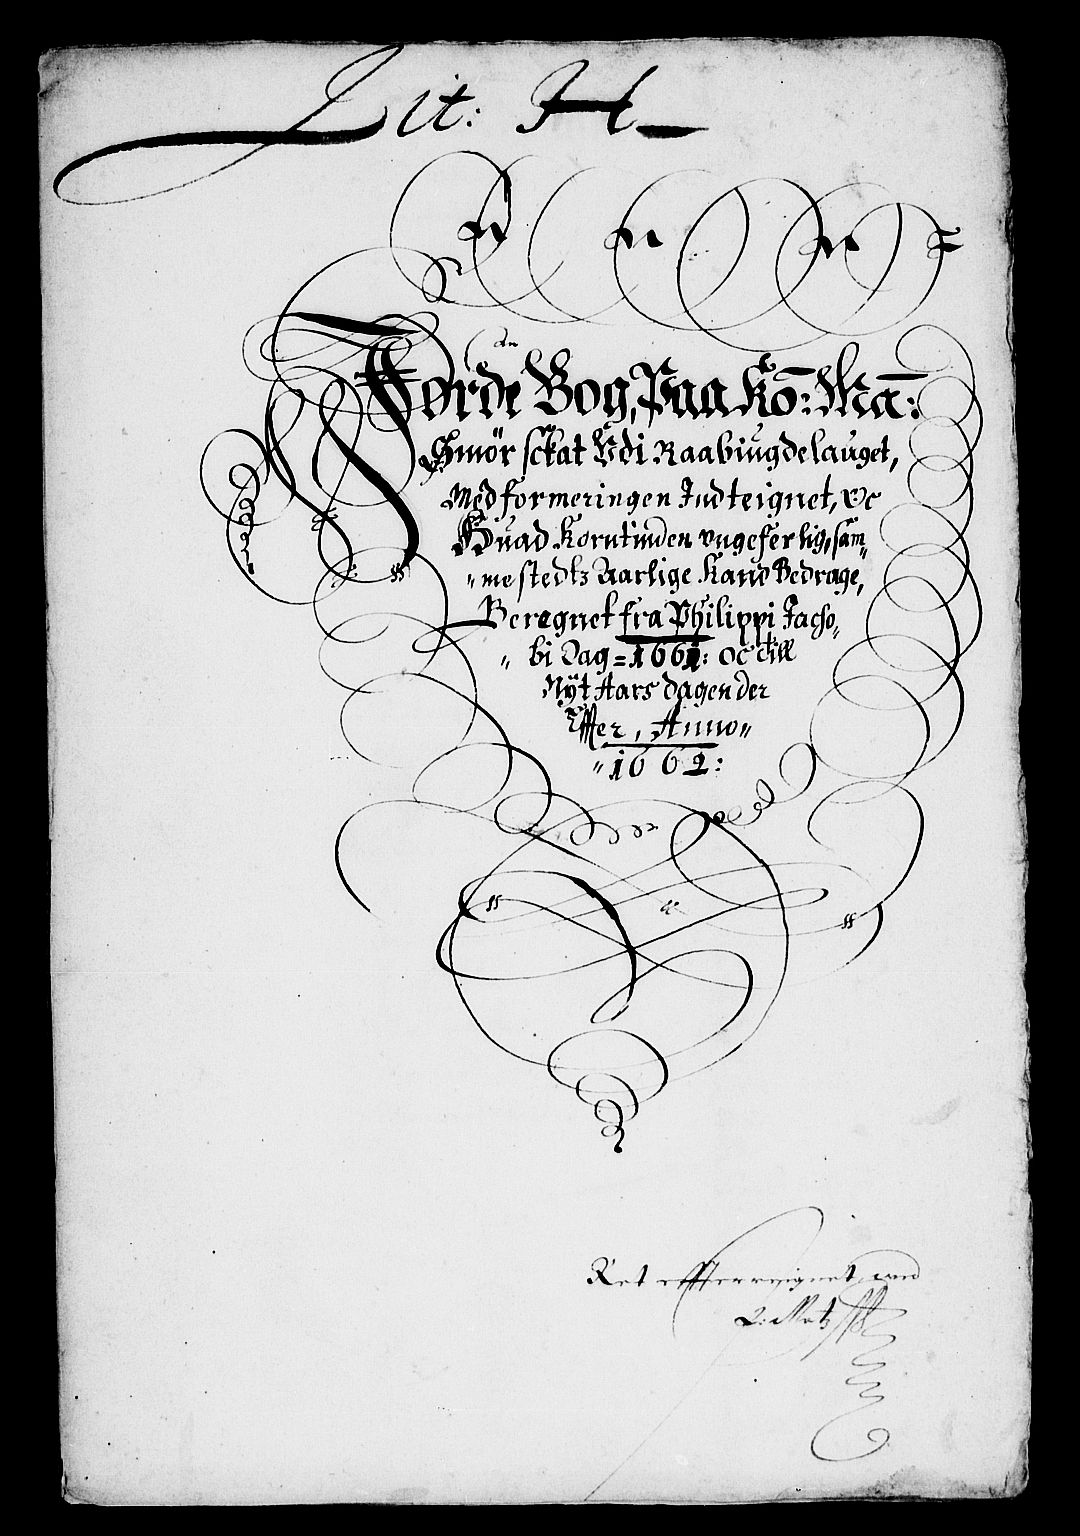 Lit: H
Jorde Bog, Paa Ko: Ma:
Smör sckat Udi Raabiugdelauget,
Med formeringen Indteignet, &c
Huad Korntinden ungeferlig, sam„
„mestedtz Aarlige Kand Bedrage,
Beregnet fra Philippi Jacho„
„bi Dag = 1661: oc till
Nÿt Aars dagen der
Effter, Anno„
„1662:
Ret effterreignet